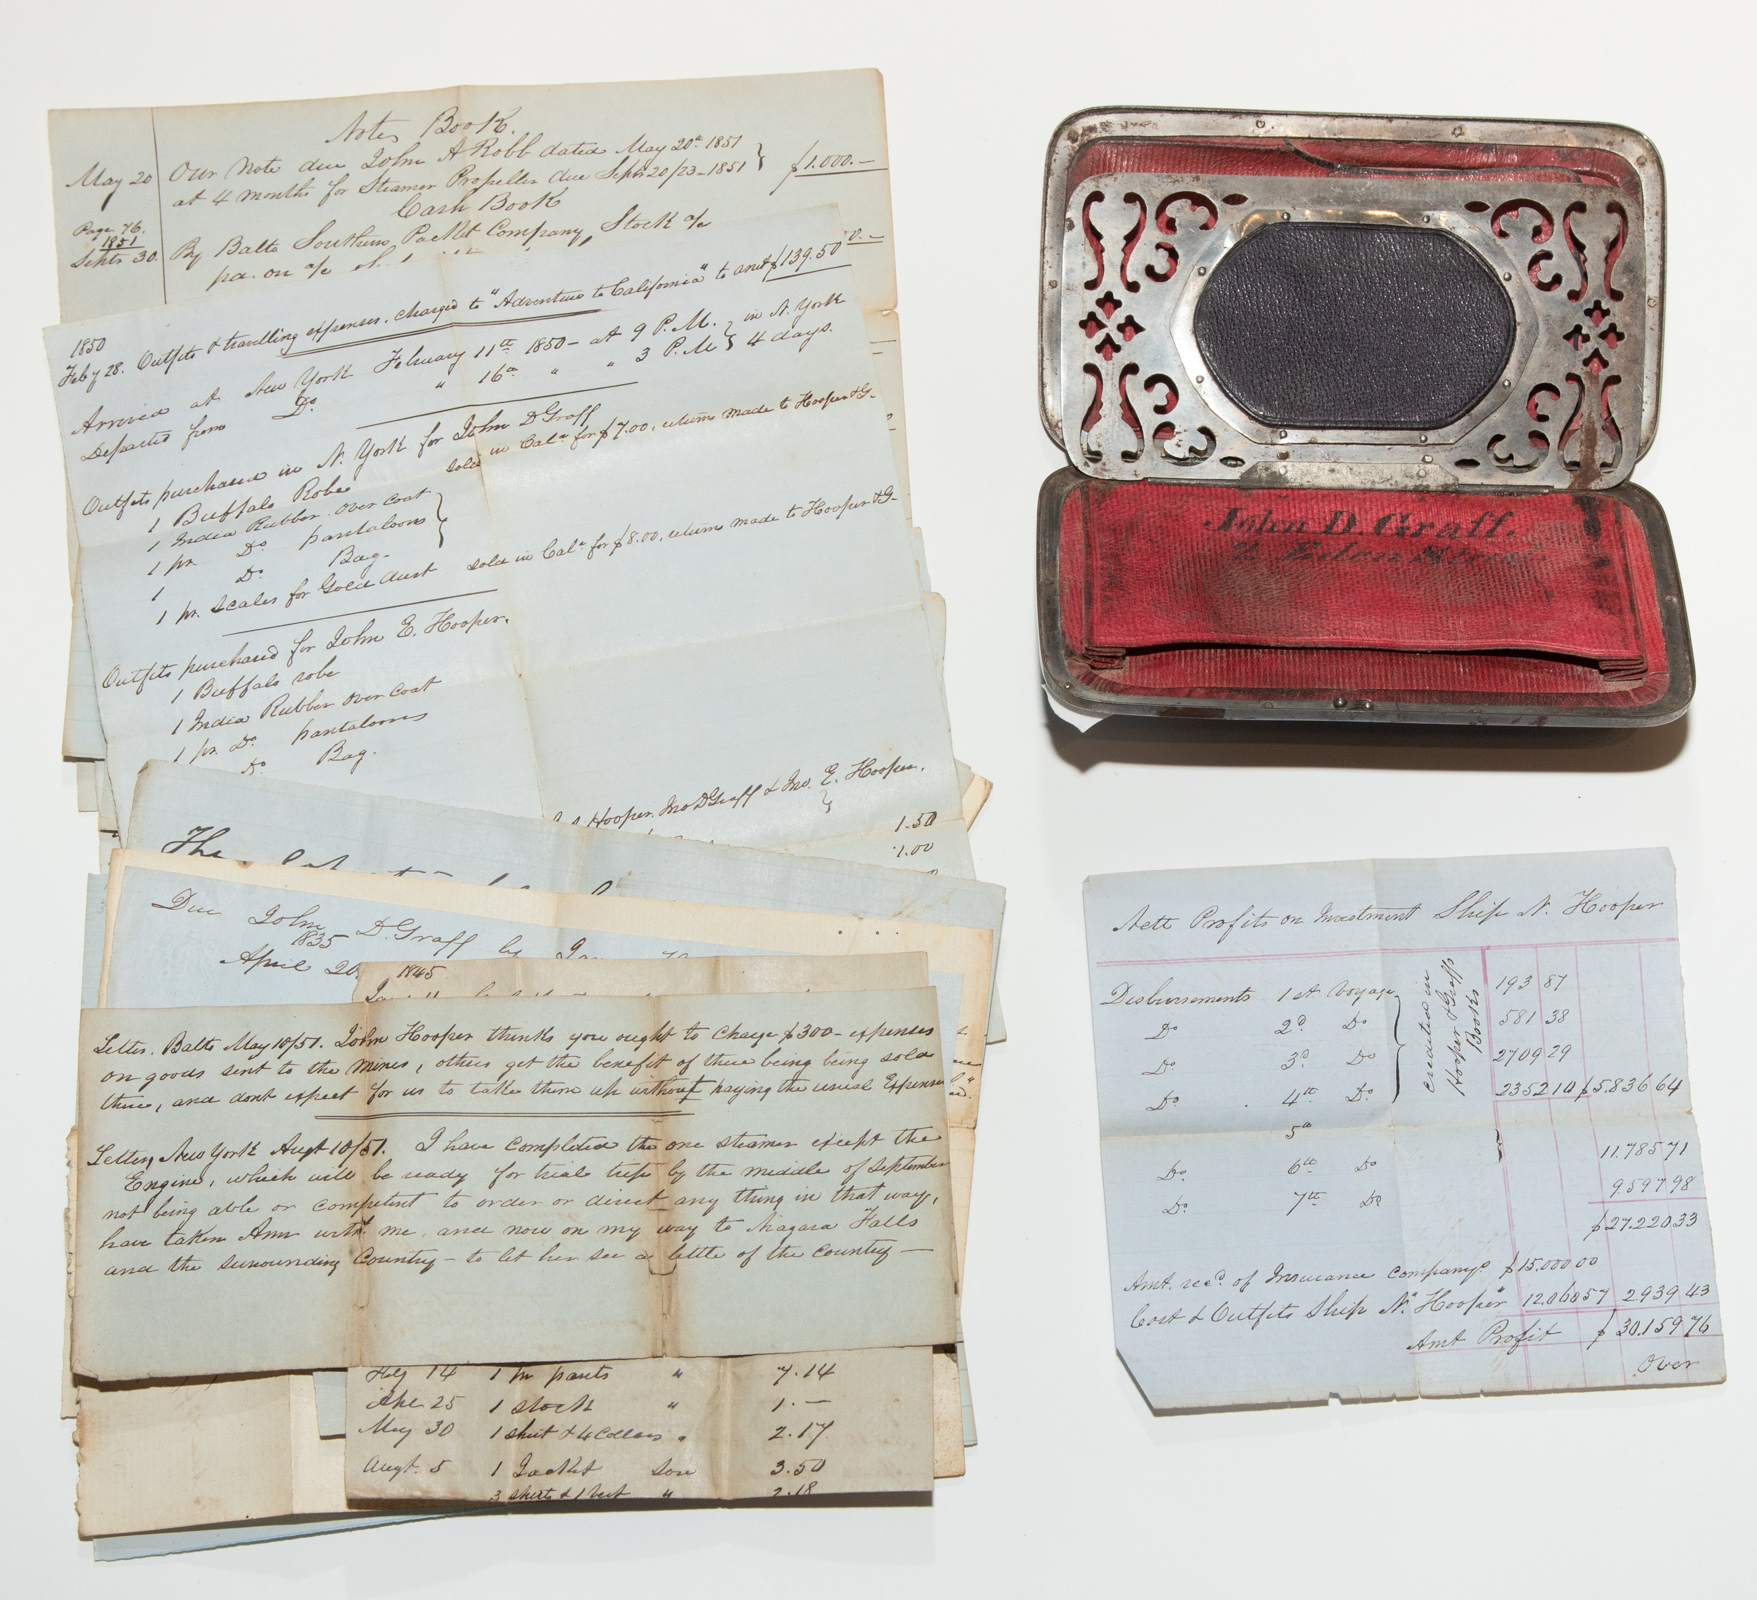 Notes Book.
May 20 Our Note due John A Robb dated May 20th 1851
at 4 months for Steamer Propeller due Septr 20/23-1851 } $1.000.-
Cash Book
Page 76.
1851
Septr 30. By Balto Southern Packet Company, Stock a/c
pd. on a/c
1850
Feby 28. Outfits & travelling expenses, charged to "Adventure to California" to amt $139.50
Arrived at New York February 11th 1850 - at 9 P.M. } in N. York
Departed from Do " 16th " " 3 P.M } 4 days.
Outfits purchased in N. York for John D Graff
1 Buffalo Robe sold in Cala for $7.00, return made to Hooper & G-
1 India Rubber over coat
1 pr. Do pantaloons
1 Do Bag.
1 pr. Scales for Gold dust sold in Cala for $8.00, return made to Hooper & G-
Outfits purchased for John E. Hooper.
1 Buffalo robe
1 India Rubber over coat
1 pr. Do pantaloons
Do Bag.
Hooper, Jno D Graff & Jno. E. Hooper.
1.50
1.00
The
Due John D. Graff by
1835
April 20
1845
Letter. Balto May 10/51. John Hooper thinks you ought to charge $300- expenses
on goods sent to the mines, others get the benefit of there being being sold
there, and dont expect for us to take them up without paying the usual Expenses
Letter, New York Augt 10/51. I have completed the one steamer except the
Engine, which will be ready for trial trip by the middle of September
not being able or competent to order or direct any thing in that way,
have taken Ann with me, and now on my way to Niagara Falls
and the surrounding Country - to let her see a little of the country -
Feby 14 1 pr pants " 7.14
Ape 25 1 stock " 1.-
May 30 1 shirt & 4 Collars " 2.17
Augt. 5 1 Jacket Son 3.50
3 shirts & 1 Vest " 2.18
John D. Graff.
Nett Profits on Investment Ship N. Hooper
Disbursements 1st Voyage 193 87
Do 2d Do 581 38
Do 3d Do 2709 29
Do 4th Do 2352 10 $5.836 64
credited in
Hooper & Graffs
Books
5th
Do 6th Do 11.785 71
Do 7th Do 9.597 98
$27.220 33
Amt. recd. of Insurance Companys $15.000 00
Cost & Outfits Ship "N. Hooper" 12.060 57 2939 43
Amt Profit $30.159 76
Over